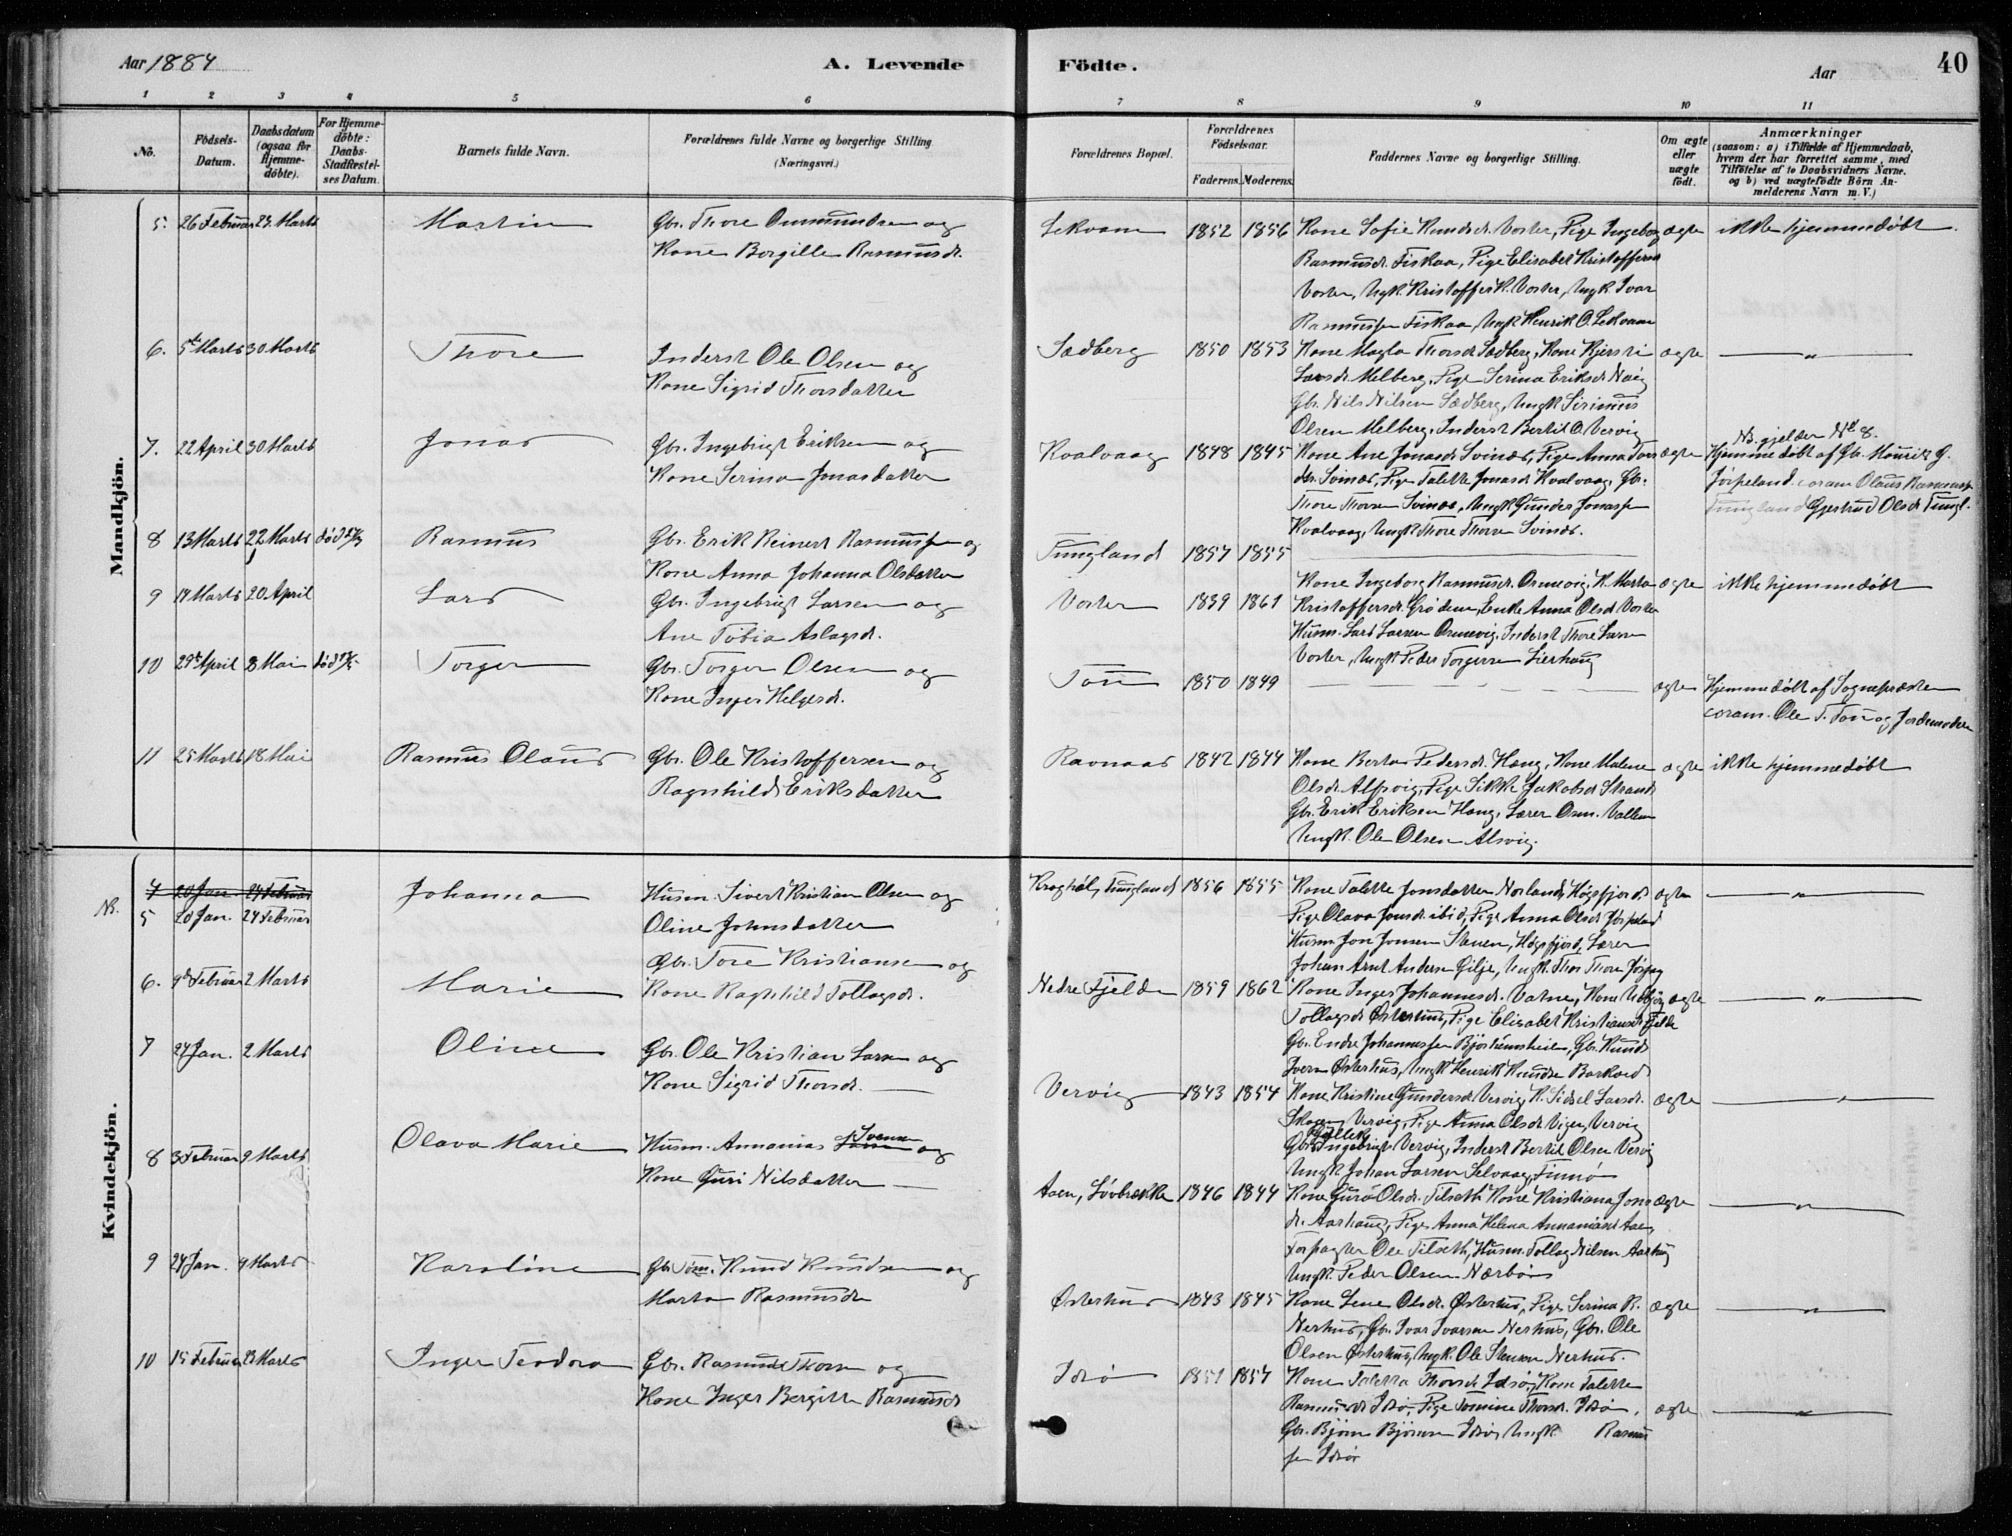 Aar 1884
A. Levende
Födte.
Aar
40
1 2 3 4 5 6 7 8 9 10 11
No.
Födsels-Datum.
Daabsdatum (ogsaa for Hjemme-döbte).
For Hjemme-döbte: Daabs-Stadfæstel-ses Datum.
Barnets fulde Navn.
Forældrenes fulde Navne og borgerlige Stilling (Næringsvei.)
Forældrenes Bopæl.
Forældrenes Födselsaar.
Faderens. Moderens.
Faddernes Navne og borgerlige Stilling.
Om ægte eller uægte födt.
Anmærkninger
(saasom: a) i Tilfælde af Hjemmedaab,
hvem der har forrettet samme, med
Tilföielse af to Daabsvidners Navne.
og b) ved uægtefödte Börn An-
melderens Navn m.V.)
Mandkjön.
5. 26 Februar 23 Marts Martin Gbr. Thore Ommundsen og
Kone Borgille Rasmusdr.
Lekvam 1852 1856 Kone Sofie Knudsdr. Voster, Pige Ingeborg ægte ikke hjemmedøbt.
Rasmusdr. Fiskaa, Pige Elisabet Kristoffersdr
Voster, Ungk. Kristoffer K. Voster, Ungk Ivar
Rasmussen Fiskaa, Ungk Henrik O. Lekvam
6. 5te Marts 30 Marts Thore Inderst Ole Olsen og
Kone Sigrid Thorsdatter
Sædberg 1850 1853 Kone Magla Thorsdr Sædberg, Kone Kjersti ægte — " —
Larsdr. Melberg, Pige Serina Eriksdr
Gbr. Nils Nilsen Sædberg, Ungk Sirinius
Olsen Melberg, Inderst Bertil O Vervig
7. 22 April 30 Marts Jonas Gbr. Ingebrigt Eriksen og
Kone Serina Jonasdatter
Kvalvaag 1848 1845 Kone Ane Jonasdr Svinæs, Pige Anna Tors ægte
dtr. Svinæs, Pige Talette Jonasdr Kvalvaag, Gbr.
Thore Thorsen Svinæs, Ungk Gunder Jonassen
Kvalvaag, Ungk Thore Thorsen Svinæs.
Nb. gjelder No 8.
Hjemmedøbt af Gbr. Mouritz G.
Jørpeland. coram Olaus Rasmussen
Tungland Gjertrud Olsdr Tungl.
8 13 Marts 22 Marts død Rasmus Gbr. Erik Reinert Rasmussen og
Kone Anna Johanna Olsdatter
Tungland 1857 1855
9 14 Marts 20 April Lars Gbr. Ingebrigt Larsen og
Ane Tobia Aslagsdr.
Voster 1839 1861 Kone Ingeborg Rasmusdr. Osmevig, K. Marta ægte ikke hjemmedøbt
Kristoffersdr. Grødem, Enke Anna Olsdr Voster
Husm. Lars Larsen Osmevig, Inderst Thore Larsen
Voster, Ungk Peder Torgersen Lierhaug
10 29de April 8 Mai død Torger Gbr. Torger Olsen og
Kone Inger Helgesdr.
Tou 1850 1849 ægte Hjemmedøbt af Sognepræsten
coram. Ole T. Tou og Jordemoderen
11 25 Marts 18 Mai Rasmus Olaus Gbr. Ole Kristoffersen og
Ragnhild Eriksdatter
Ravnaas 1842 1844 Kone Berta Pedersdr. Haug, Kone Malene ægte ikke hjemmedøbt
Olsdr. Alsvig, Pige Sikke Jakobsdr Strand
Gbr. Erik Eriksen Haug, Lærer Osm. Vallem
Ungk. Ole Olsen Alsvig.
Kvindekjön.
4 20 Jan. 24 Februar
Nb. 5 20 Jan. 24 Februar Johanna Husm. Sivert Kristian Olsen og
Oline Johnsdatter
Kraghøl, Tungland 1856 1855 Kone Talette Jonsdatter Norland, Høgsfjord ægte — " —
Pige Olava Jonsdr. ibid, Pige Anna Olsdr Jørpeland
Husm Jon Jonsen Stenen, Høgsfjord, Lærer
Johan Arnt Andersen Gilje, Ungk. Thor Thorsen
6. 9de Februar 2 Marts Marie Gbr. Tore Kristiansen og
Kone Ragnhild Tollagsdr.
Nedre Fjelde 1859 1862 Kone Inger Johannesdr. Vatne, Kone ægte — " —
Tollagsdr Østerhus, Pige Elisabet Kristiansdr Fjelde
Gbr. Endre Johannessen Bjørheimsheien, Gbr. Knud
Iversen Østerhus, Ungk Henrik Knudsen Barkved
7 24 Jan. 2 Marts Oline Gbr. Ole Kristian Larsen og
Kone Sigrid Thorsdr.
Vervig 1843 1854 Kone Kristine Gundersdr Vervig, K. Sidsel Larsdr. ægte — " —
Skogen Vervig, Pige Anna Olsdr Vigen, Vervig
Gbr. Ingebrigt Vervig, Inderst Bertil Olsen Vervig
Ungk. Johan Larsen Selvaag, Finnø
8 3 Februar 9 Marts Olava Marie Husm. Annanias Svensen og
Kone Guri Nilsdatter
Aaen, Løvbrække 1846 1844 Kone Guro Olsdr. Tilseth Kone Kristiana Jons ægte — " —
dr. Aarhaug, Pige Anna Helena Annaniasdr Aaen
Forpagter Ole Tilseth, Husm. Tollag Nilsen Aarhaug
Ungk. Peder Olsen Nærbø
9 24 Jan. 9 Marts Karoline Gbr. Tøm. Knud Knudsen og
Marta Rasmusdr
Østerhus 1843 1845 Kone Lene Olsdr. Østerhus, Pige Serina R. ægte — " —
Nerhus, Gbr. Ivar Ivarsen Nerhus, Gbr. Ole
Olsen Østerhus, Ungk. Ole Stensen Nerhus.
10 15 Februar 23 Marts Inger Teodora Gbr. Rasmus Thorsen og
Kone Inger Bergitte Rasmusdr
Idsø 1851 1857 Kone Taletta Thorsdr Idsø, Kone Talette
Rasmusdr Idsø, Pige Tomine Thorsdr. Idsø, ægte — " —
Gbr. Bjørn Bjørnsen Idsø, Ungk Rasmus
sen Idsø